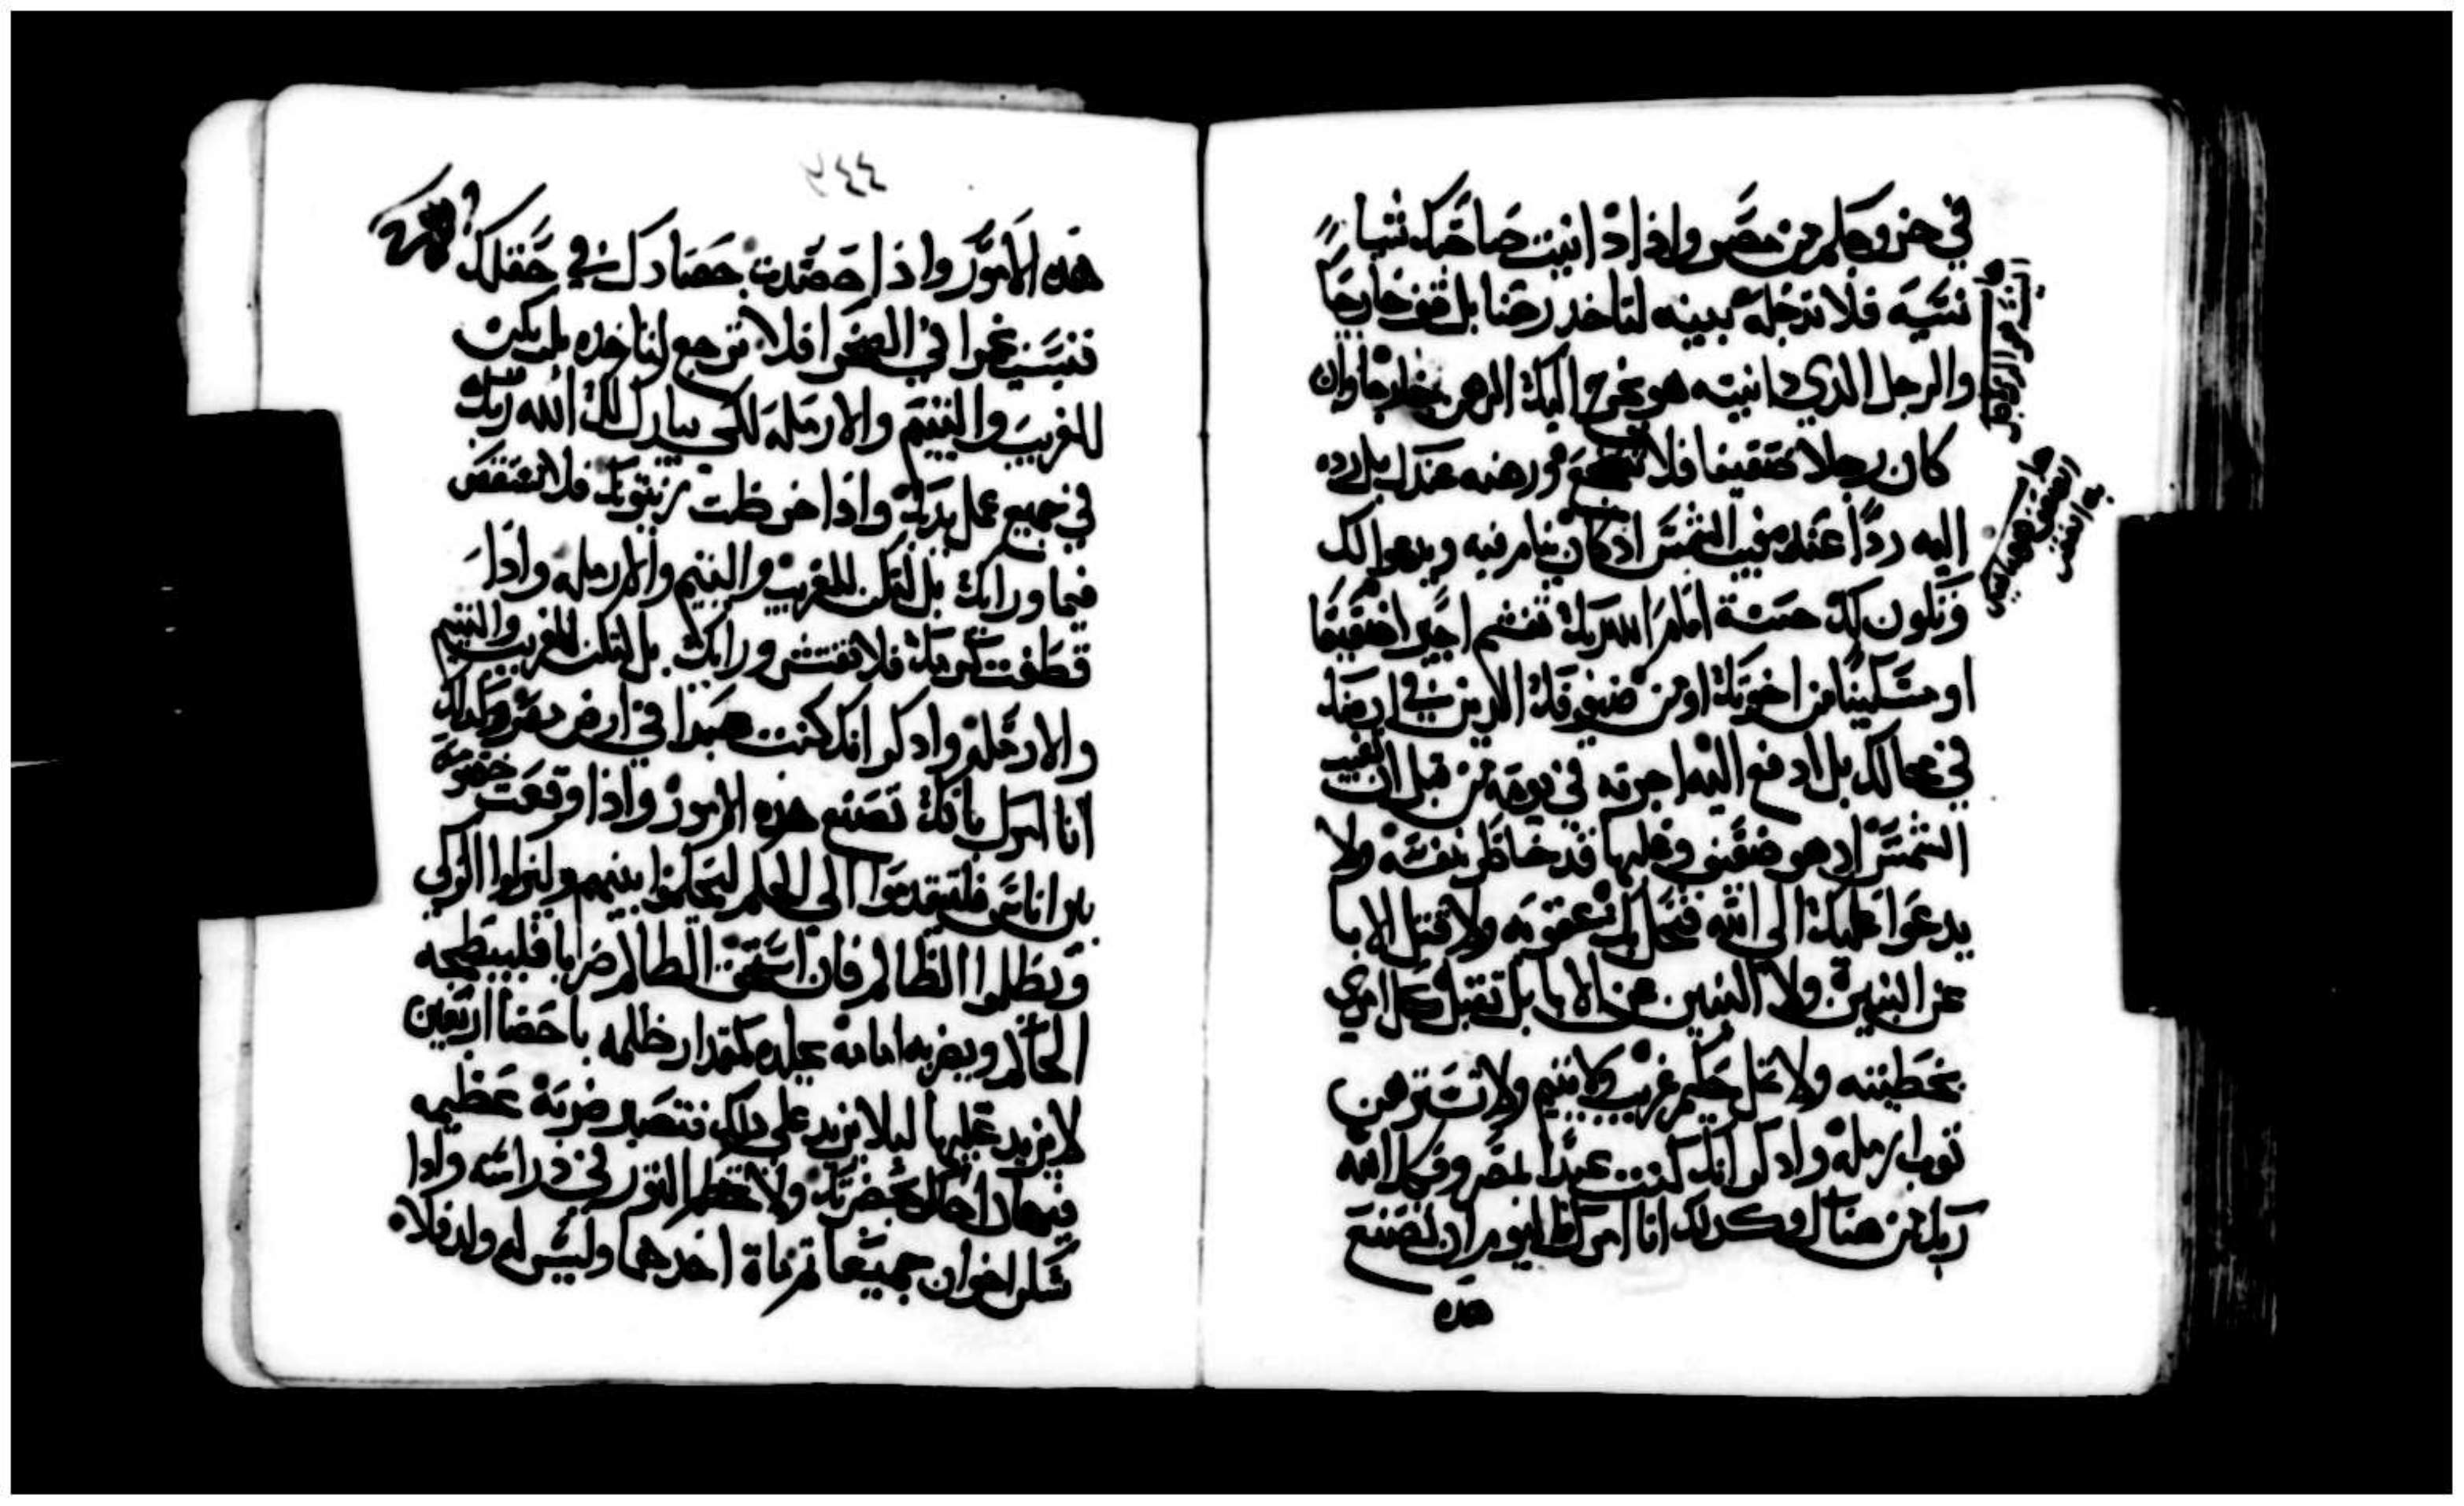 في خروجكم من مصر واذا دانيت صاحبك شيا
نسية فلا تدخل بيته لتاخد رهنا بل قف خارجا
والرجل الدي دانيته هو يخرج اليك الرهن خارجا وان
كان رجلا ضعيفا فلا ورهنه عندك بل رده
اليه ردا عند مغيب الشمس ادكان ينام فيه ويدعوا لك
وتكون لك حسنة امام الله ربك تغشم اجيرا ضعيفا
او مسكينا من اخوتك او من ضيوفك الدين في ارضك
في محالك بل ادفع اليه اجرته في يومه من قبل ان تغيب
الشمس اد هو ضعيف وعليها قد خاطر بنفسه ولا
يدعوا عليك الى الله فتحل بك عقوبه ولا تقتل الابا
عن البنين ولا البنين عن الابا بل تقتل كل امري
بخطيته ولا تمل حكم غريب ولا يتيم ولا تسترهن
توب ارمله وادكر انك كنت عبدا بمصر وفكك الله
ربك من هناك لدلك انا امرك اليوم ان تصنع
هده
٢٤٤
هده الامور واذا حصدت حصادك في حقلك
فنسيت غمرا في الصحرا فلا ترجع لتاخده بل يكن
للغريب واليتيم والارمله لكي يبارك لك الله ربك
في جميع عمل يديك واذا خرطت زيتونك فلا تتقص
فيما ورايك بل لتكن للغريب واليتيم والارمله واذا
قطفت كرمك فلا تفتش ورايك بل لتكن للغريب واليتيم
والارمله وادكر انك كنت عبدا في ارض مصر ولدلك
انا امرك بانك تصنع هذه الامور واذا وقعت خصومة
بين اناس فليتقدموا الى الحكم ليحكموا بينهم وليزكوا الزكي
ويظلموا الظالم فان استحق الظالم ضربا فليبطحه
الحاكم ويضربه امامه بمقدار ظلمه باحصا اربعين
لا يزيد عليها ليلا يزيد على دلك فتصير ضربة عظيمه
فيهان اخاك بحضرتك ولا تكم الثور في دراسه واذا
سكن اخوان جميعا ثم مات احدهما وليس له ولد فلا